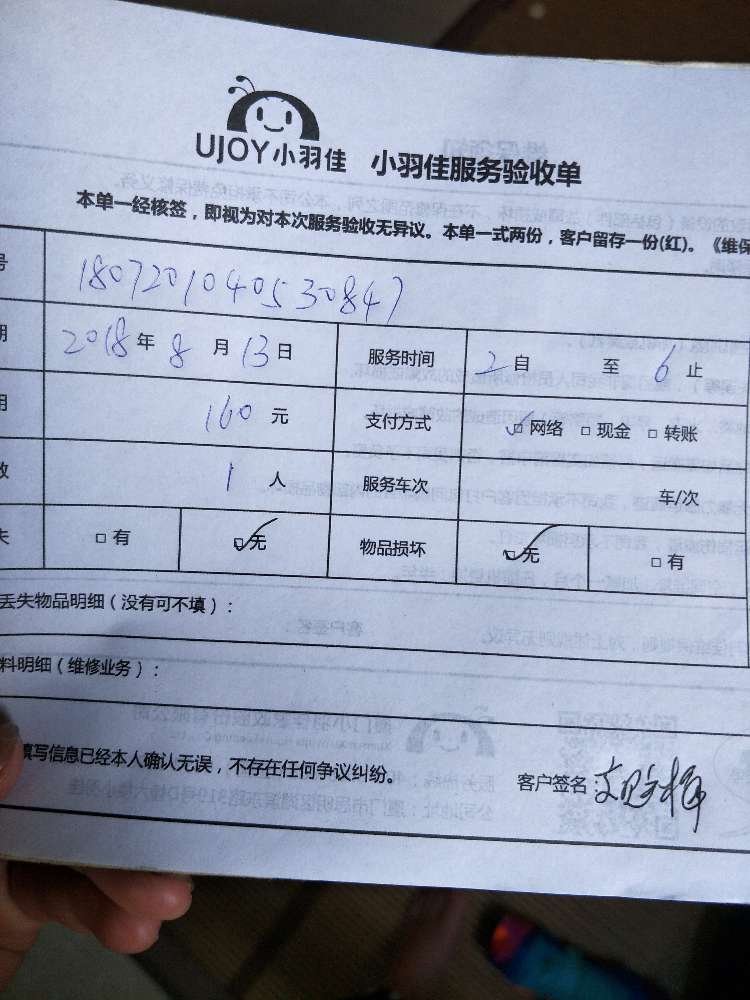 UJOY小羽佳 小羽佳服务验收单
本单一经核签，即视为对本次服务验收无异议。本单一式两份，客户留存一份(红)。《维保
号 180720104053 0847
期 2018年8月13日 服务时间 2自 至 6止
用 160元 支付方式 ✓□网络 □现金 □转账
数 1人 服务车次 车/次
失 □有 ☑无 物品损坏 ☑无 □有
丢失物品明细（没有可不填）：
料明细（维修业务）：
填写信息已经本人确认无误，不存在任何争议纠纷。 客户签名